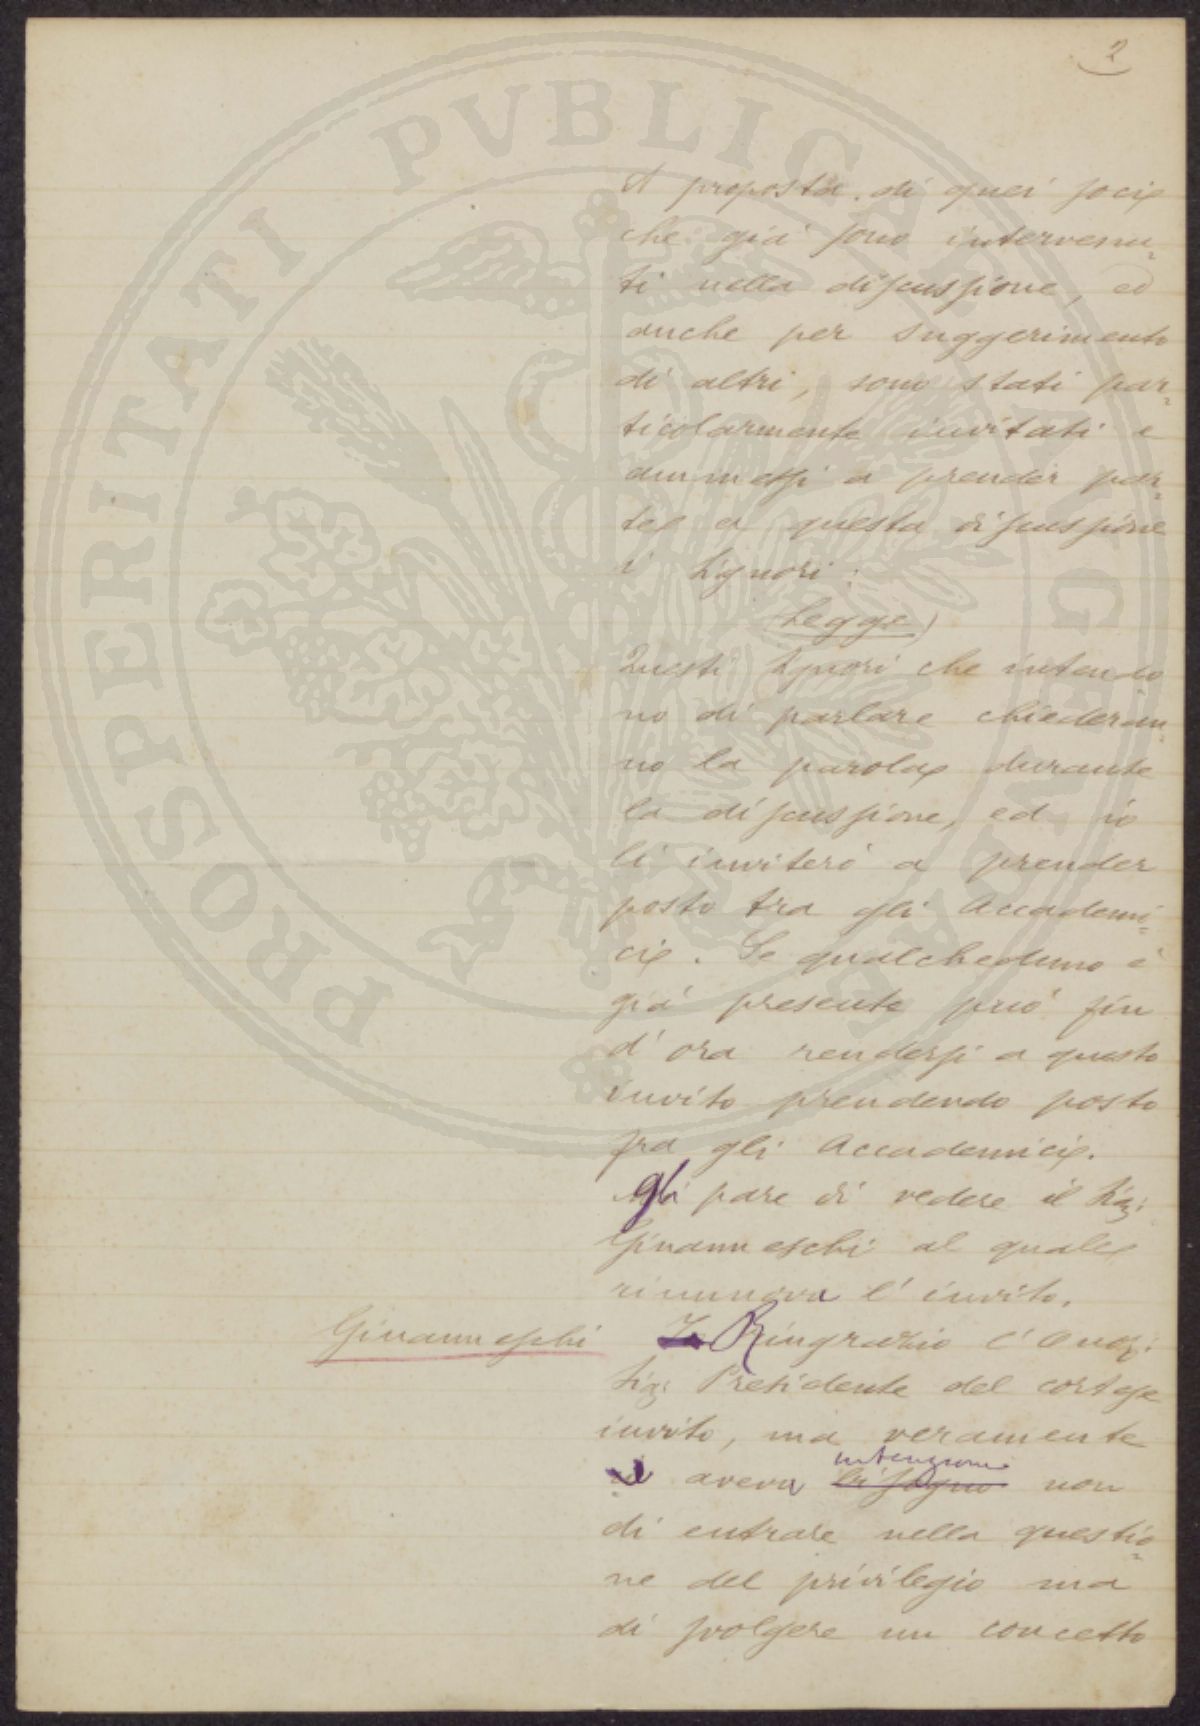 2
A proposta di quei soci
che già sono intervenu=
ti nella discussione, ed
anche per suggerimento
di altri, sono stati par=
ticolarmente invitati e
ammessi a prender par=
te a questa discussione
i Signori:
(Legge)
Questi Signori che intendo
no di parlare chiederan=
no la parola durante
la discussione, ed io
li inviterò a prender
posto tra gli Accademi=
ci. Se qualcheduno è
già presente può fin
d'ora rendersi a questo
invito prendendo posto
fra gli Accademici.
gli pare di vedere il Sig:
Giuanneschi al quale
rinnova l'invito.
Giuanneschi Ringrazio l'Onor:
Sig: Presidente del cortese
invito, ma veramente
intenzione
aveva bisogno non
di entrare nella questio=
ne del privilegio ma
di svolgere un concetto
PROSPERITATI PVBLICAE AVGENDAE